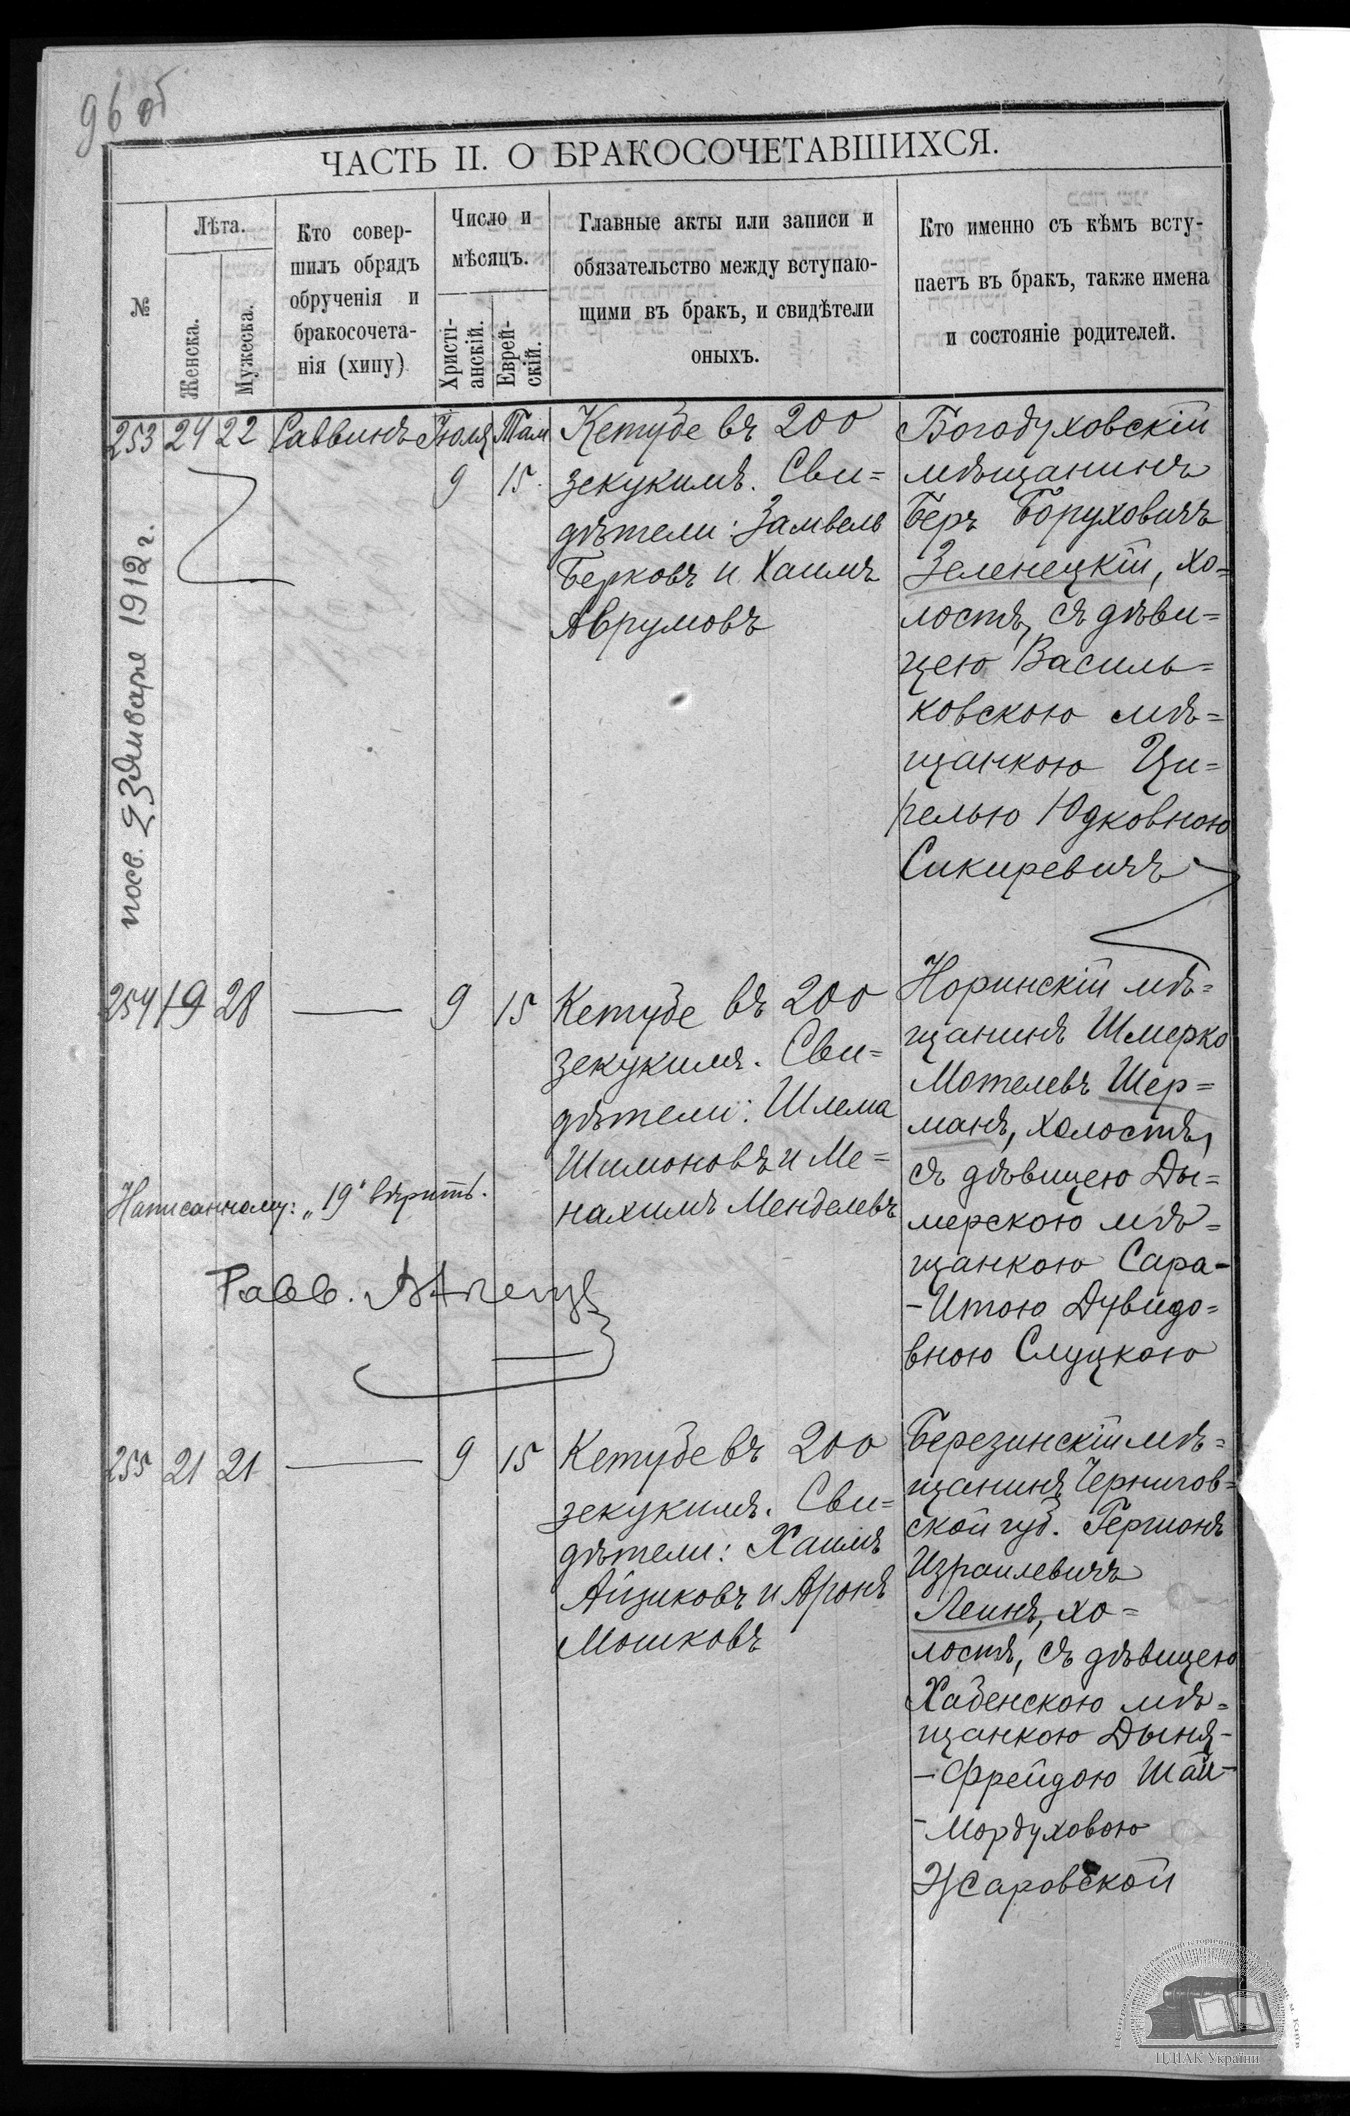 96 об
ЧАСТЬ II. О БРАКОСОЧЕТАВШИХСЯ.
№
Лѣта.
Женска.
Мужеска.
Кто совер-
шилъ обрядъ
обрученія и
бракосочета-
нія (хипу)
Число и
мѣсяцъ.
Христі-
анскій.
Еврей-
скій.
Главные акты или записи и
обязательство между вступаю-
щими въ бракъ, и свидѣтели
оныхъ.
Кто именно съ кѣмъ всту-
паетъ въ бракъ, также имена
и состояніе родителей.
253 24 22 Раввинъ Іюля Там
9 15.
Кетубе въ 200
зекукимъ. Сви=
дѣтели: Замвель
Берковъ и Хаимъ
Аврумовъ
Богодуховскій
мѣщанинъ
Беръ Боруховичъ
Зеленецкій, хо=
лостъ, съ дѣви=
цею Василь=
ковскою мѣ=
щанкою Ци=
релью Юдковною
Сикиревичъ
посв. 23 Января 1912 г.
254 19 28 — 9 15
Кетубе въ 200
зекукимъ. Сви=
дѣтели: Шлема
Шимоновъ и Ме=
нахимъ Менделевъ
Норинскій мѣ=
щанинъ Шмерко
Мотелевъ Шер=
манъ, холостъ,
съ дѣвицею Ды=
мерскою мѣ=
щанкою Сара-
-Итою Дувидо=
вною Слуцкою
Написанному: „19" вѣрить.
Равв.
255 21 21 — 9 15
Кетубе въ 200
зекукимъ. Сви=
дѣтели: Хаимъ
Айзиковъ и Аронъ
Мошковъ
Березинскій мѣ=
щанинъ Чернигов=
ской губ. Гершонъ
Израилевичъ
Леинъ, хо=
лостъ, съ дѣвицею
Хабенскою мѣ=
щанкою Дыня-
-Фрейдою Шай-
-Мордуховою
Жаровской
ЦДІАК України